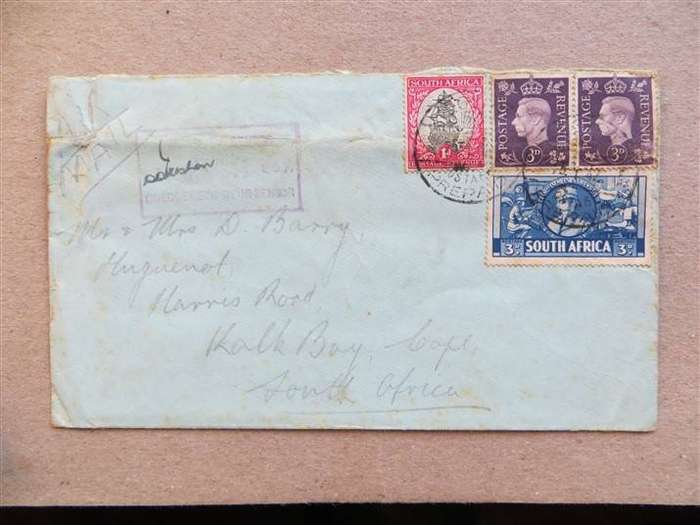 SOUTH AFRICA
1D
POSTAGE
REVENUE
3D
POSTAGE
REVENUE
3D
3D
SOUTH AFRICA
3D
Mr & Mrs D. Barry,
Huguenot,
Harris Road
Kalk Bay, Cape,
South Africa